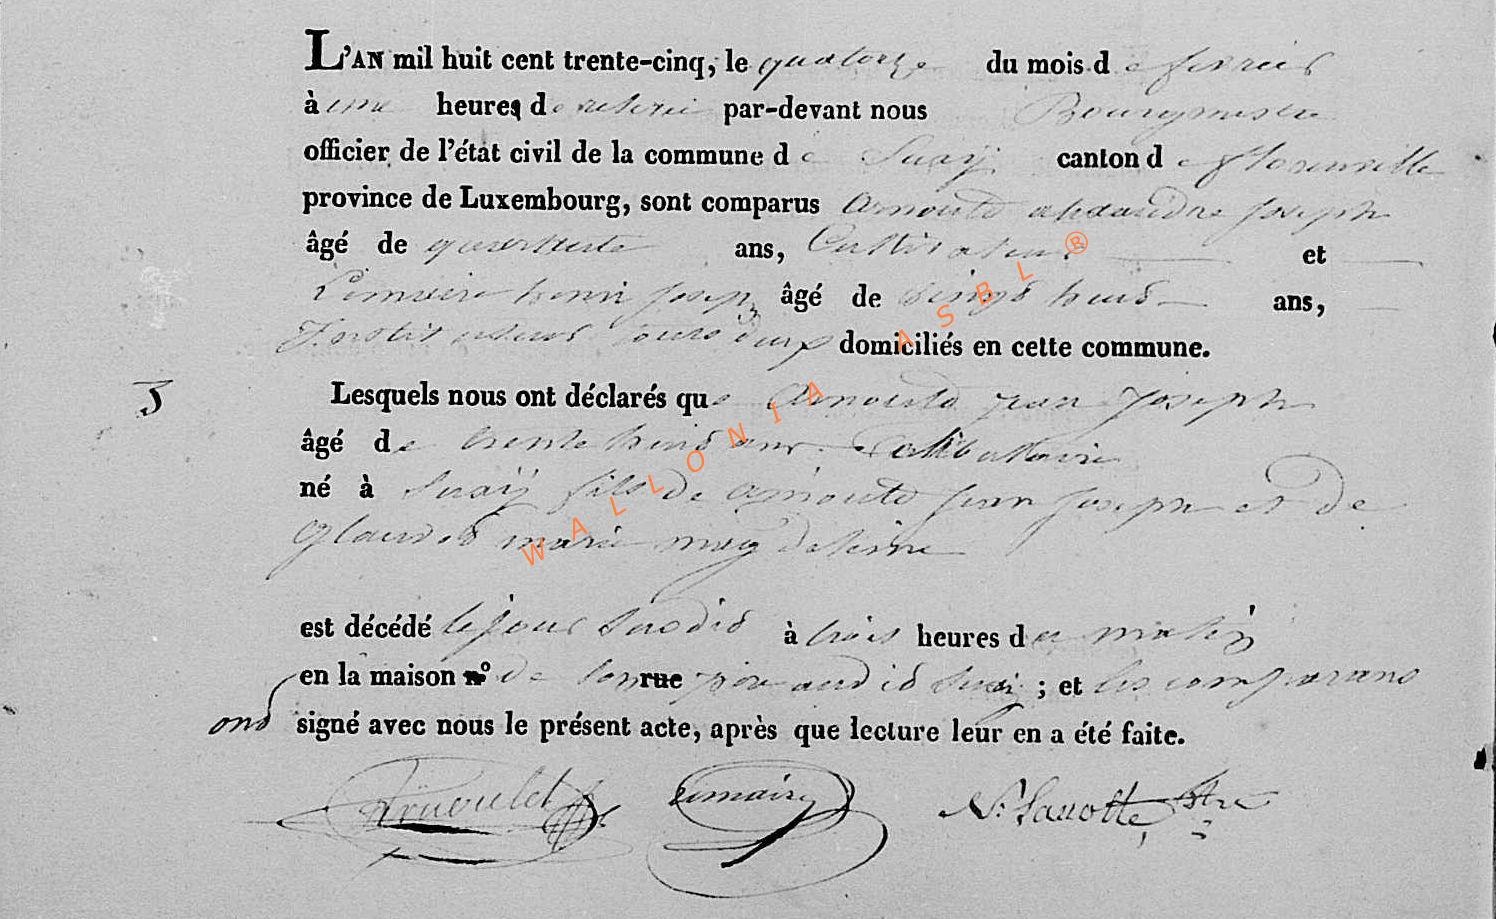 L'AN mil huit cent trente-cinq, le quatorze du mois de fevrier
à une heures de relevée par-devant nous Bourgmestre
officier de l'état civil de la commune de Suxÿ canton de florenville
province de Luxembourg, sont comparus arnould alexandre Joseph
âgé de quarante ans, Cultivateur et
Lemaire henri Joseph âgé de vingt huit ans,
Instituteur tous deux domiciliés en cette commune.
3
Lesquels nous ont déclarés que arnould jean Joseph
âgé de trente huit ans Celibataire
né à Suxÿ fils de arnould jean Joseph et de
marie magdeleine
est décédé le jour susdit à trois heures du matin
en la maison n° de son rue père audit Suxÿ ; et les comparans
ont signé avec nous le présent acte, après que lecture leur en a été faite.
Lemaire
WALLONIA ASBL ®